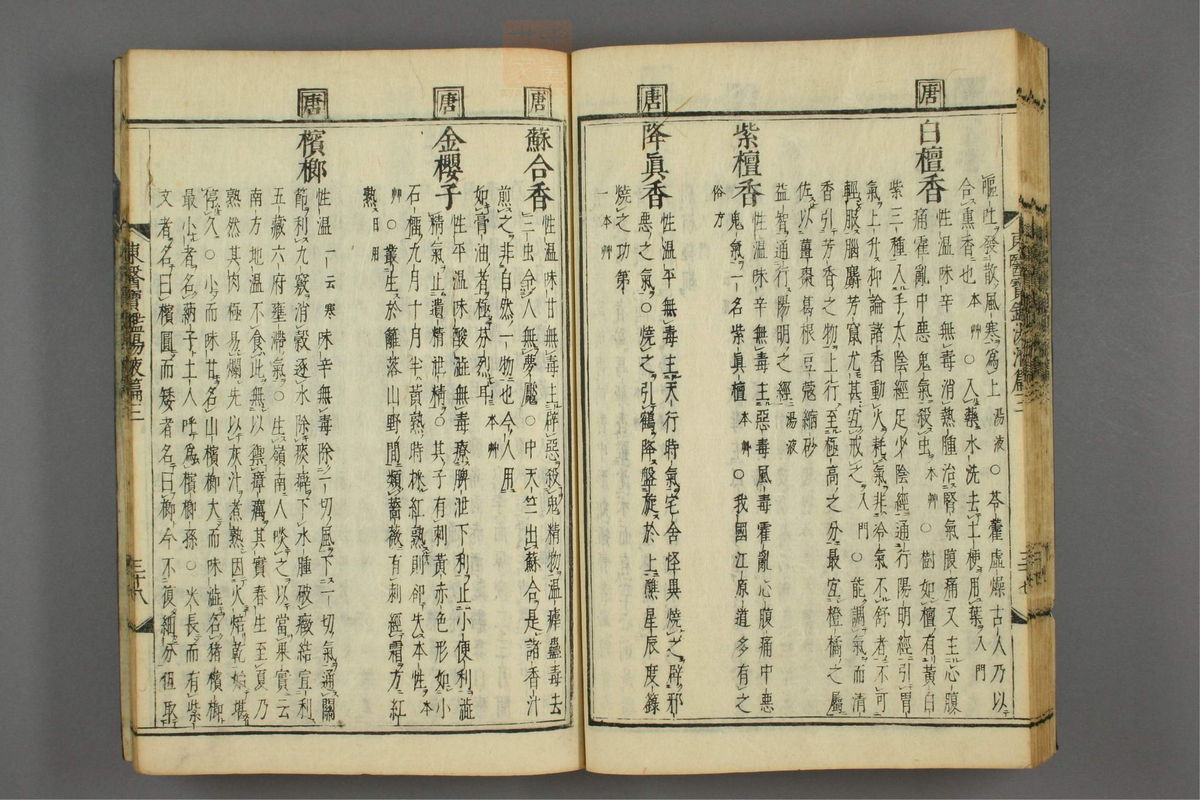 嘔吐發散風寒爲上湯液○苓藿虛燥古人乃以
合熏香也本艸○入藥水洗去土梗用葉入門
唐
白檀香
性温味辛無毒消熱腫治腎氣腹痛又主心腹
痛霍亂中惡鬼氣殺虫本艸○樹如檀有黃白
紫三種入手太陰經足少陰經通行陽明經引胃
氣上升抑論諸香動火耗氣非冷氣不舒者不可
輕服腦麝芳竄尤甚宜戒之入門○能調氣而清
香引芳香之物上行至極高之分最宜橙橘之屬
佐以薑棗葛根豆蔻縮砂
益智通行陽明之經湯液
紫檀香
性温味辛無毒主惡毒風毒霍亂心腹痛中惡
鬼氣一名紫眞檀本艸○我國江原道多有之
俗方
唐
降眞香
性温平無毒主天行時氣宅舍怪異燒之辟邪
惡之氣○燒之引鶴降盤旋於上醮星辰度籙
燒之功第
一本艸
東醫寶鑑湯液篇三
三十七
唐
蘇合香
性温味甘無毒主辟惡殺鬼精物温瘧蠱毒去
三虫令人無夢魘○中天竺出蘇合是諸香汁
煎之非自然一物也今人用
如膏油者極芬烈耳本艸
唐
金櫻子
性平温味酸澁無毒療脾泄下利止小便利澁
精氣止遺精泄精○其子有刺黃赤色形如小
石榴九月十月半黃熟時採紅熟則却失本性本
艸○叢生於籬落山野間類薔薇有刺經霜方紅
熟日用
唐
檳榔
性温一云寒味辛無毒除一切風下一切氣通關
節利九竅消穀逐水除痰癖下水腫破癥結宣利
五藏六府壅滯氣○生嶺南人啖之以當果實云
南方地温不食此無以禦瘴癘其實春生至夏乃
熟然其肉極易爛先以灰汁煮熟因火焙乾始堪
停久○小而味甘名山檳榔大而味澁名猪檳榔
最小者名蒳子土人呼爲檳榔孫○尖長而有紫
文者名曰檳圓而矮者名曰榔今不復細分但取
東醫寶鑑湯液篇三
三十八